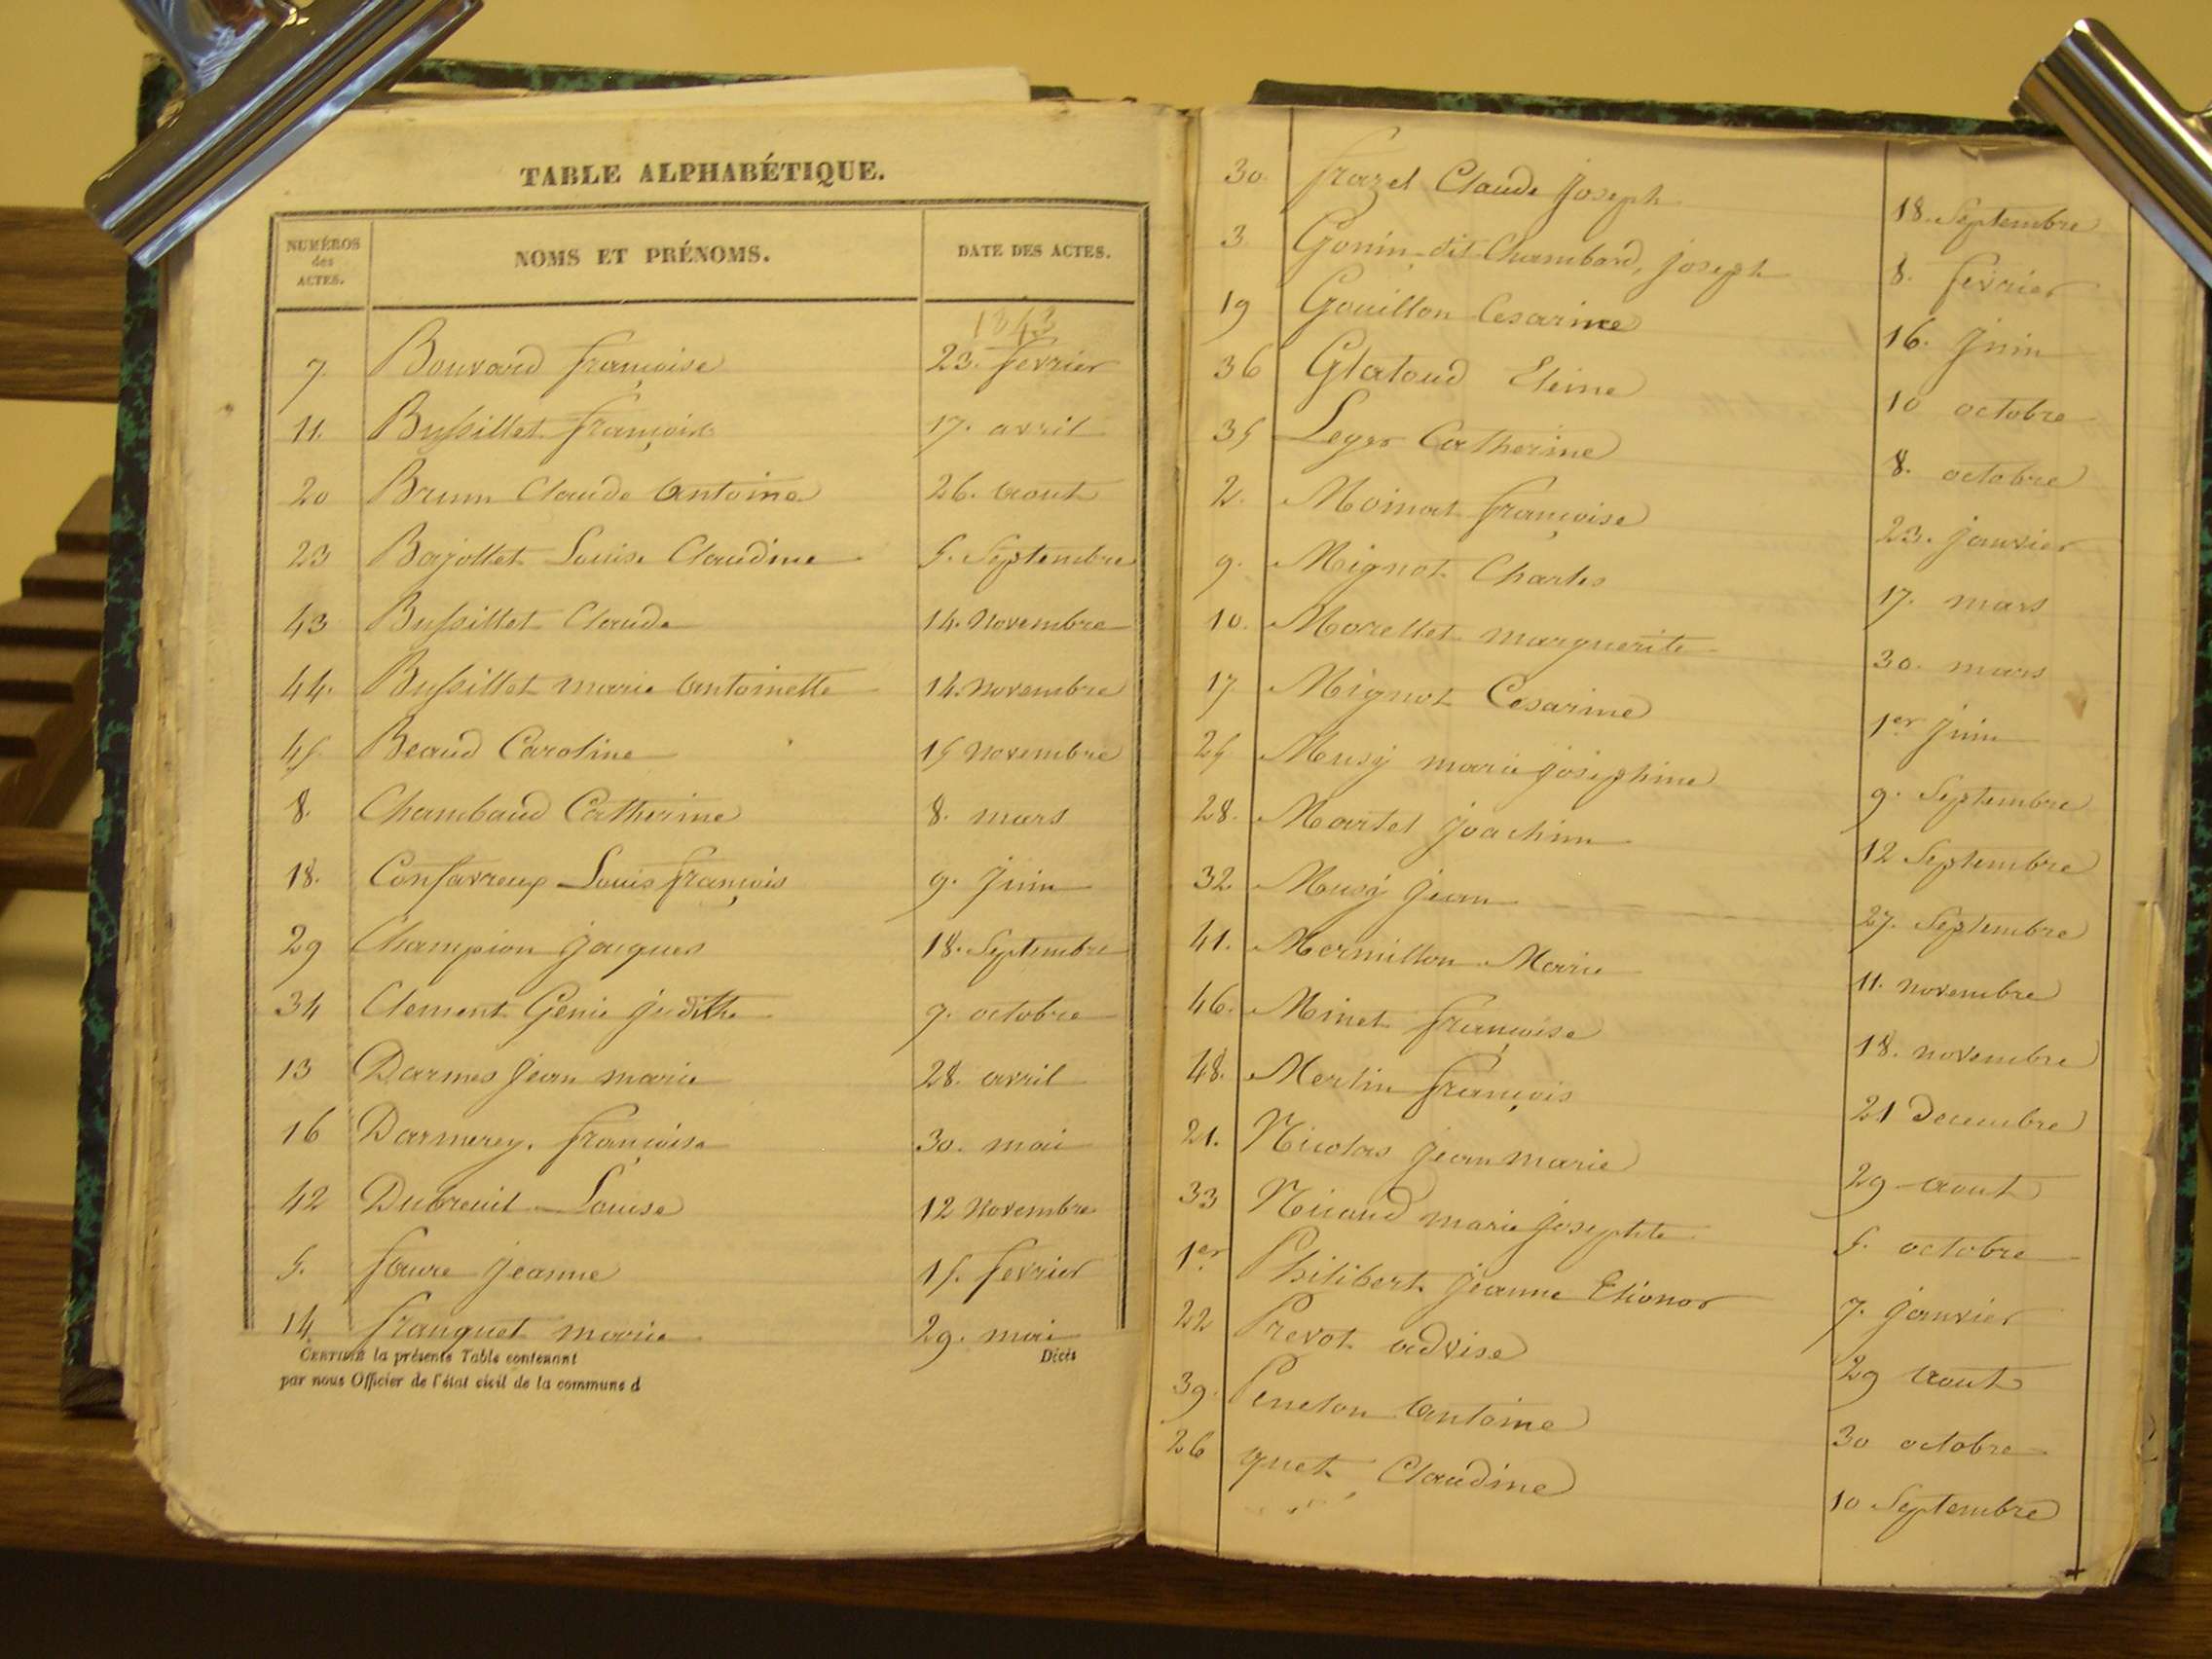 TABLE ALPHABÉTIQUE.
NUMÉROS des ACTES. NOMS ET PRÉNOMS. DATE DES ACTES.
1843
7. Bouvard françoise 23. fevrier
11. Bussillet françois 17. avril
20 Brunn Claude Antoine 26. aout
23 Bajollet Louise Claudine 5. Septembre
43 Bussillet Claude 14. Novembre
44. Bussillet marie Antoinette 14. Novembre
45 Beaud Caroline 15 Novembre
8. Chambaud Catherine 8. mars
18. Confavreux Louis françois 9. Juin
29 Champion Jacques 18. Septembre
34 Clement Genie Judithe 7. octobre
13 Darmes Jean marie 28. avril
16 Darmerey. françoise 30. mai
42 Dubreuil Louise 12 Novembre
5. faure Jeanne 15. fevrier
14 franquet marie 29. mai
CERTIFIÉ la présente Table contenant Décès
par nous Officier de l'état civil de la commune d
30. frazel Claude Joseph 18. Septembre
3 Gonin dit Chambard, Joseph 8. fevrier
19 Gouillon Cesarine 16. Juin
36 Glatoud Eleine 10 octobre
35 Leger Catherine 8. octobre
2. Moinat françoise 23. Janvier
9. Mignot Charles 17. mars
10. Morellet marguerite 30. mars
17 Mignot Cesarine 1er Juin
25 Musÿ marie Josephine 9. Septembre
28. Martel Joachim 12 Septembre
32 Musÿ Jean 27. Septembre
41. Mermillon Marie 11. Novembre
46. Minet françoise 18. Novembre
48. Merlin françois 21 Decembre
21. Nicolas Jean marie 29 aout
33 Nicaud marie Josephte 5. octobre
1er Philibert Jeanne Elionor 7. Janvier
22 Prevot advise 29 aout
39. Peneton Antoine 30 octobre
26 quet, Claudine 10 Septembre